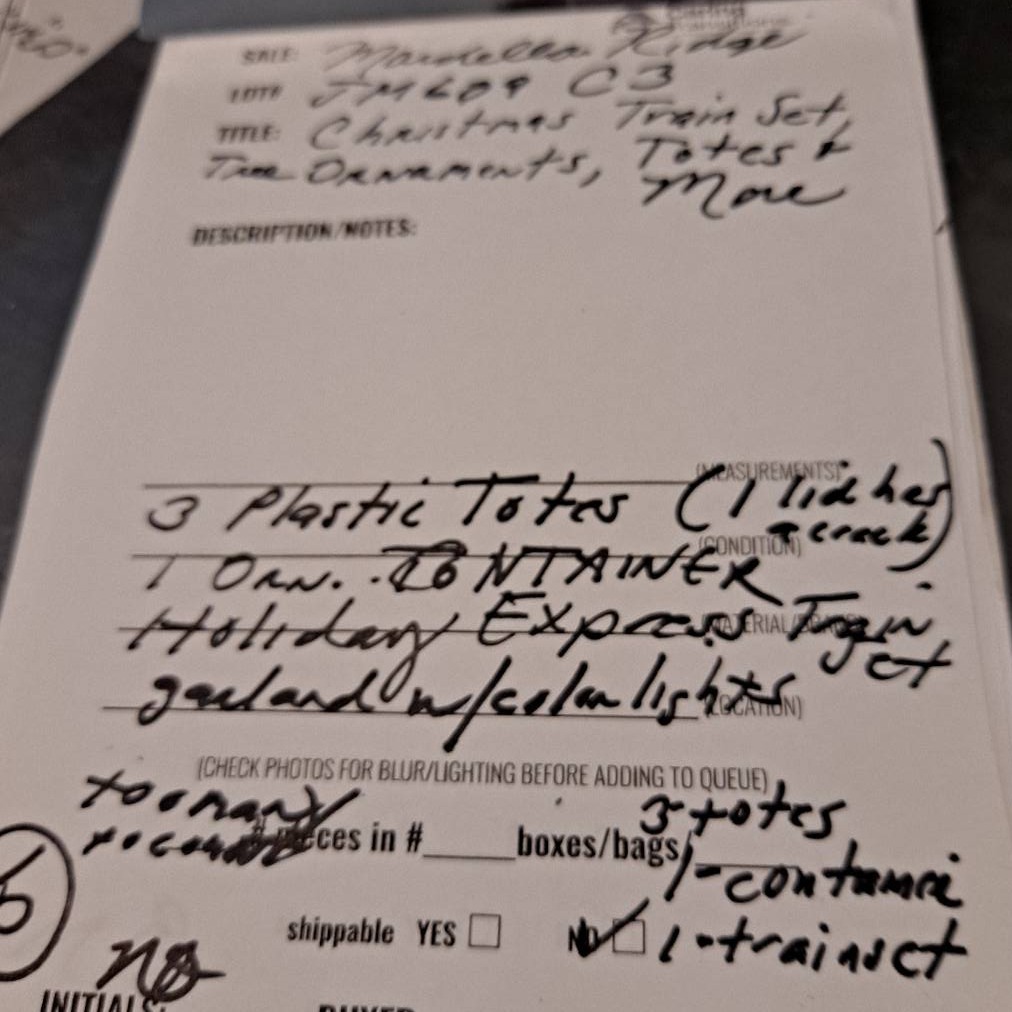 SALE: Mardella Ridge
LOT# JM609 C3
TITLE: Christmas Train Set,
Tree Ornaments, Totes &
More
DESCRIPTION/NOTES:
(MEASUREMENTS)
3 Plastic Totes (1 lid has
a crack)
(CONDITION)
1 Orn. CONTAINER
Holiday Express Train
set
garland w/color lights
(LOCATION)
(CHECK PHOTOS FOR BLUR/LIGHTING BEFORE ADDING TO QUEUE)
too many
to count
# pieces in # boxes/bags
3-totes
1-container
1-trainset
shippable YES NO
INITIALS:
BUYER